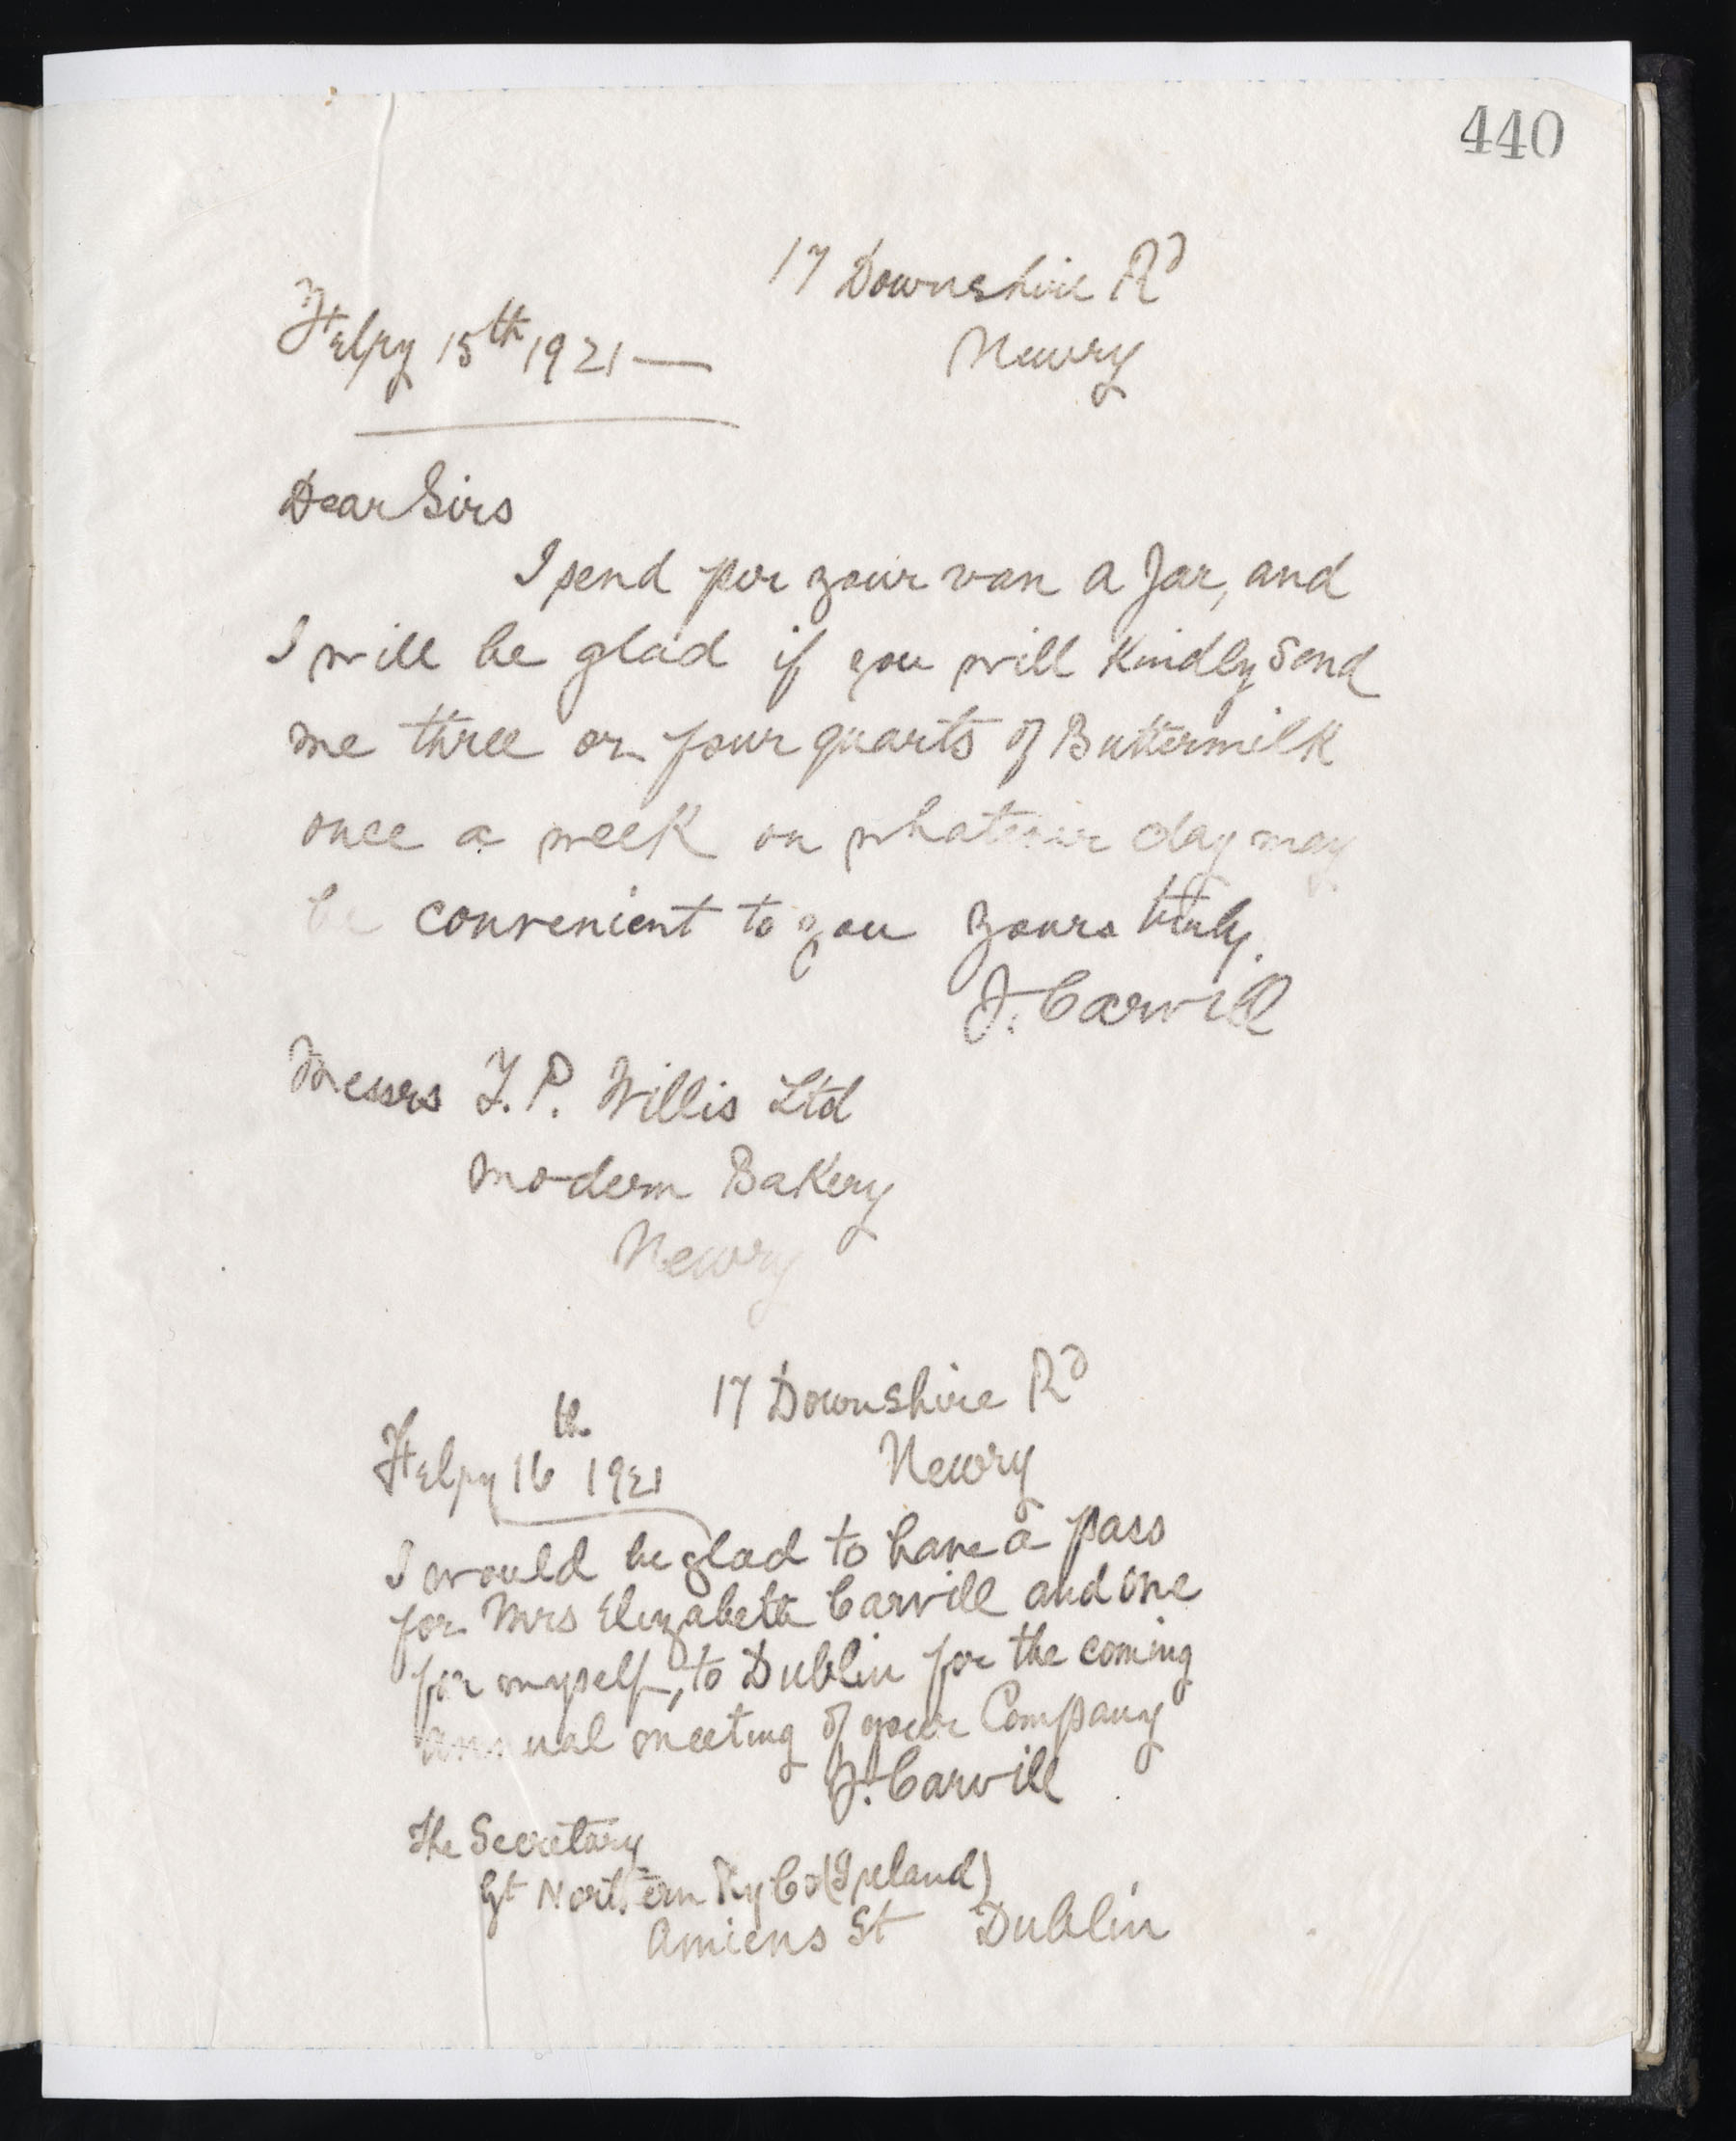 440
17 Downshire Rd
Newry
Feby 15th 1921
Dear Sirs
I send per your van a Jar, and
I will be glad if you will kindly send
me three or four quarts of Buttermilk
once a week on whatever day may
be convenient to you Yours truly.
J. Carvill
Messrs F. P. Willis Ltd
Modern Bakery
Newry
17 Downshire Rd
Newry
Feby 16th 1921
I would be glad to have a pass
for Mrs Elizabeth Carvill and one
for myself, to Dublin for the coming
annual meeting of your Company
J. Carvill
The Secretary
Gt Northern Ry Co (Ireland)
Amiens St Dublin